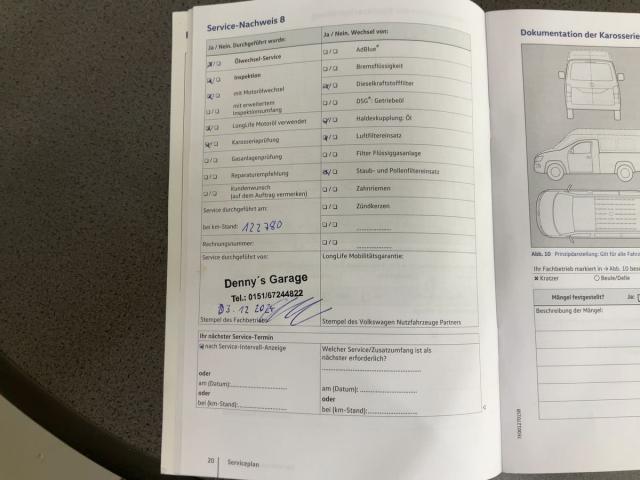 Service-Nachweis 8
Ja / Nein. Durchgeführt wurde:
Ölwechsel-Service
Inspektion
mit Motorölwechsel
mit erweitertem
Inspektionsumfang
LongLife Motoröl verwendet
Karosserieprüfung
Gasanlagenprüfung
Reparaturempfehlung
Kundenwunsch
(auf dem Auftrag vermerken)
Service durchgeführt am:
bei km-Stand: 122780
Rechnungsnummer:
Service durchgeführt von:
Denny´s Garage
Tel.: 0151/67244822
03.12.202
Stempel des Fachbetriebs
Ja / Nein. Wechsel von:
AdBlue®
Bremsflüssigkeit
Dieselkraftstofffilter
DSG®: Getriebeöl
Haldexkupplung: Öl
Luftfiltereinsatz
Filter Flüssiggasanlage
Staub- und Pollenfiltereinsatz
Zahnriemen
Zündkerzen
LongLife Mobilitätsgarantie:
Stempel des Volkswagen Nutzfahrzeuge Partners
Ihr nächster Service-Termin
nach Service-Intervall-Anzeige
oder
am (Datum):
oder
bei (km-Stand):
Welcher Service/Zusatzumfang ist als
nächster erforderlich?
am (Datum):
oder
bei (km-Stand):
20 Serviceplan
Dokumentation der Karosserie
Abb. 10 Prinzipdarstellung: Gilt für alle
Ihr Fachbetrieb markiert in → Abb. 10
Kratzer
Beule/Delle
Mängel festgestellt? Ja:
Beschreibung der Mängel: